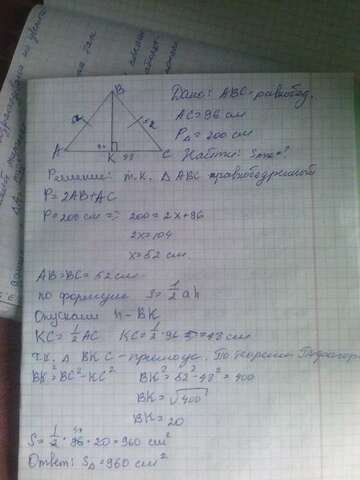 B
A
K
C
52
48
Дано: ABC - равнобед.
AC = 96 см
P△ = 200 см
Найти: S
Решение: т.к. △ ABC равнобедренный
P = 2AB + AC
P = 200 см => 200 = 2x + 96
2x = 104
x = 52 см
AB = BC = 52 см
по формуле S = 1/2 ah
Опускаем h - BK
KC = 1/2 AC KC = 1/2 · 96 = 48 см
т.к. △ BKC - прямоуг. По теореме Пифагора
BK² = BC² - KC² BK² = 52² - 48² = 400
BK = √400
BK = 20
S = 1/2 · 96 · 20 = 960 см²
Ответ: S△ = 960 см²